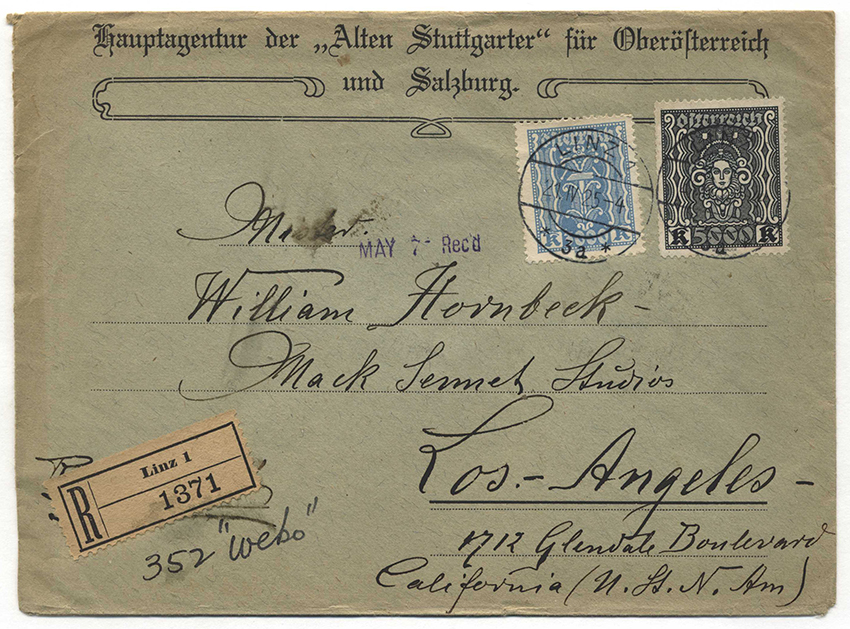 Hauptagentur der „Alten Stuttgarter“ für Oberösterreich
und Salzburg.
österreich
LINZ 1
21 IV 25-4
* 3a *
K K
österreich
K 5000 K
Mister.
MAY 7 - Rec'd
William Hornbeck -
Mack Sennet Studios
Los.- Angeles -
1712 Glendale Boulevard
California (U. St. N. Am)
R
Linz 1
1371
352 "Webo"